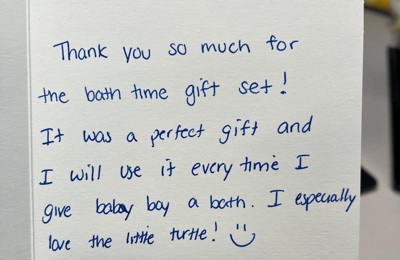 Thank you so much for
the bath time gift set!
It was a perfect gift and
I will use it every time I
give baby boy a bath. I especially
love the little turtle!